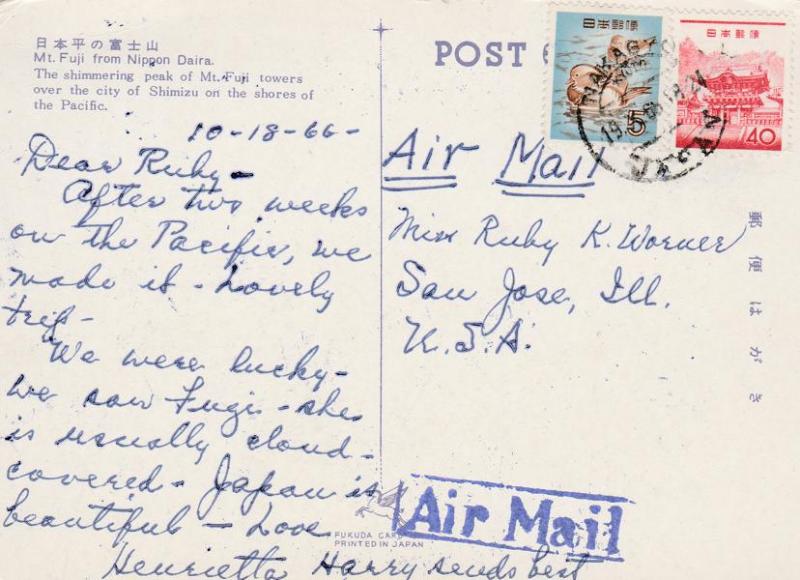 日本平の富士山
Mt. Fuji from Nippon Daira.
The shimmering peak of Mt. Fuji towers
over the city of Shimizu on the shores of
the Pacific.
10-18-66-
Dear Ruby-
After two weeks
on the Pacific, we
made it - Lovely
trip-
We were lucky-
we saw Fugi - she
is usually cloud-
covered - Japan is
beautiful - Love
Henrietta Harry sends best
POST
日本郵便
5
日本郵便
40
Air Mail
Miss Ruby K. Worner
San Jose, Ill.
U.S.A.
郵便はがき
Air Mail
FUKUDA CARD
PRINTED IN JAPAN